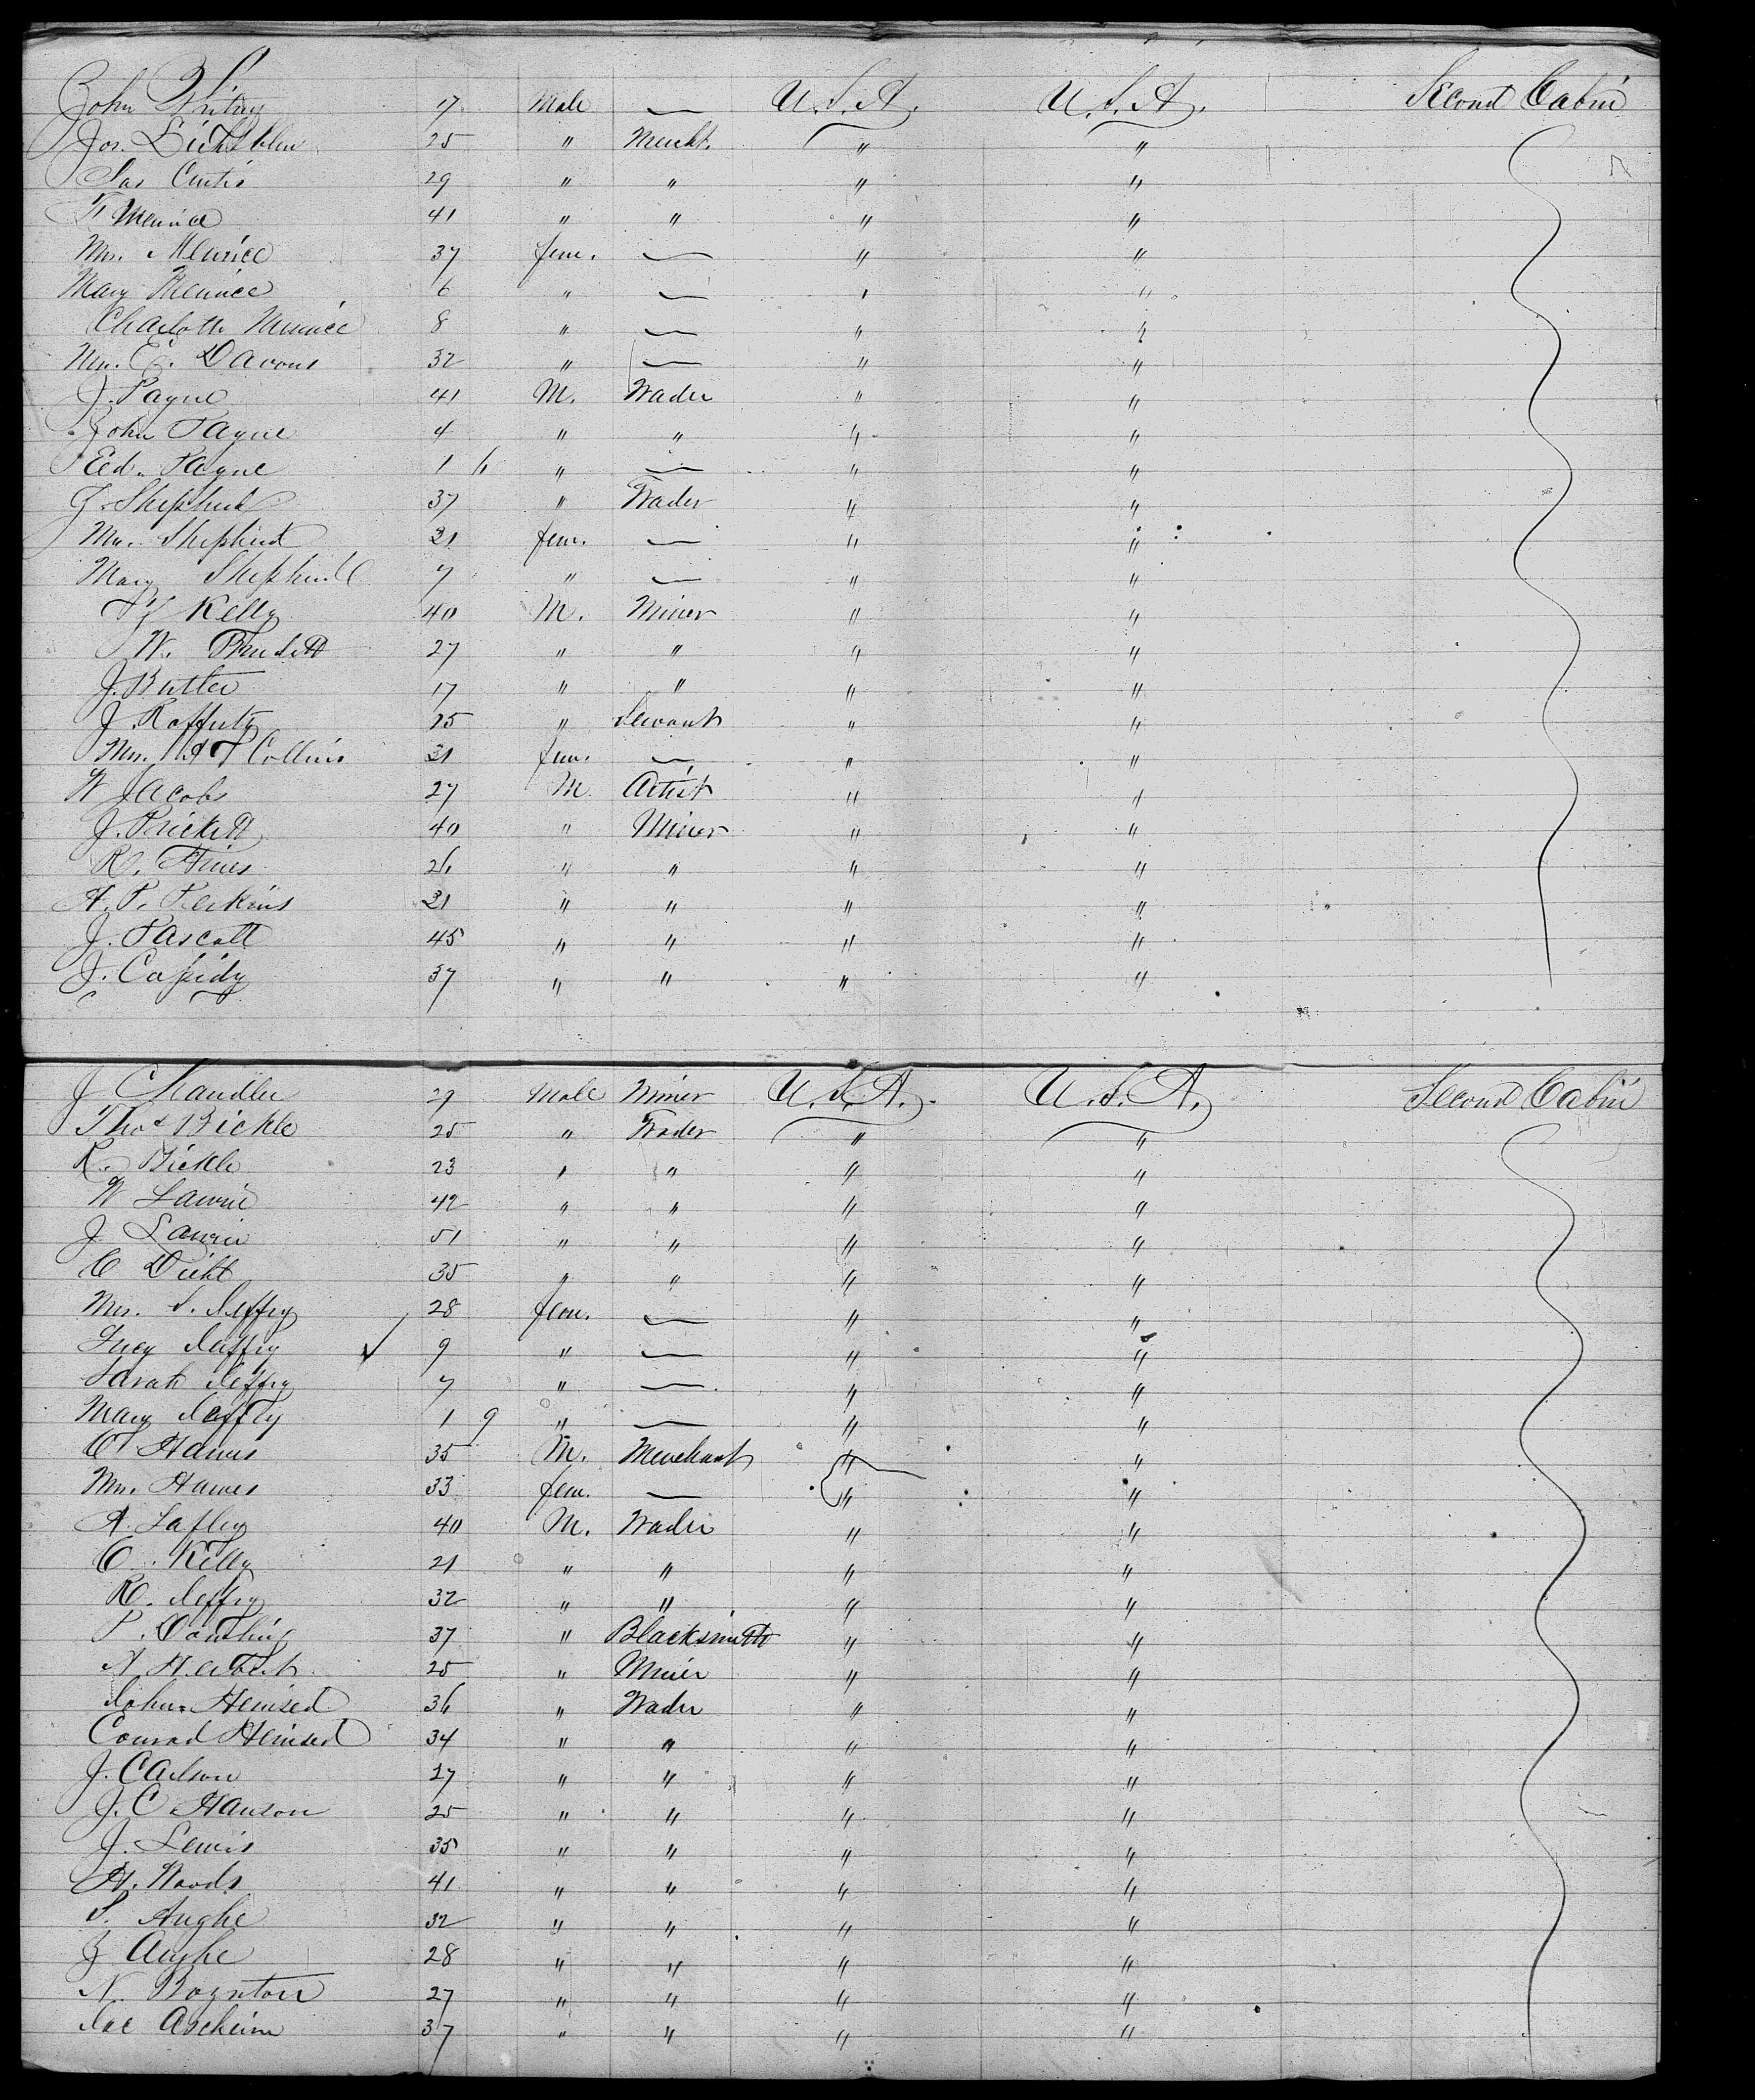 John Whitney 17 Male — U.S.A. U.S.A. Second Cabin
Jos. 25 " Mercht. " "
Jas Curtis 29 " " " "
41 " " " "
Mrs. Meurice 37 fem. — " "
Mary Meurice 6 " — " "
Charlotte Meurice 8 " — " "
Mrs. E. Davons 32 " — " "
J. Payne 41 M. Trader " "
John Payne 4 " " " "
Ed. Payne 1 6 " — " "
J. Shepherd 37 " Trader " "
Mrs. Shepherd 21 fem. — " "
Mary Shepherd 7 " — " "
Kelly 40 M. Miner " "
W. 27 " " " "
J. Butler 17 " " " "
J. Rafferty 25 " Servant " "
Mrs. Collins 31 fem. — " "
W Jacobs 27 M. Artist " "
J. Prickett 40 " Miner " "
R. Hines 26 " " " "
H. P. Perkins 21 " " " "
J. Pascall 45 " " " "
J. Cassidy 37 " " " "
J Chandler 29 Male Miner U.S.A. U.S.A. Second Cabin
Thos Bickle 25 " Trader " "
R. Bickle 23 " " " "
W Lawrie 42 " " " "
J Lawrie 51 " " " "
C Diehl 35 " " " "
Mrs. S. Jeffry 28 fem. — " "
Lucy Jeffry 9 " — " "
Sarah Jeffry 7 " — " "
Mary Jeffry 1 9 " — " "
C Hawes 35 M. Merchant " "
Mrs. Hawes 33 fem. — " "
A. Lafley 40 M. Trader " "
C. Kelly 21 " " " "
R. Jeffry 32 " " " "
P. 37 " Blacksmith " "
A Herbert 25 " Miner " "
John Heinsed 36 " Trader " "
Conrad Heinsed 34 " " " "
J. Carlson 27 " " " "
J. C Hanson 25 " " " "
J. Lewis 35 " " " "
H. Woods 41 " " " "
S. Anghe 32 " " " "
J Anghe 28 " " " "
N. Boynton 27 " " " "
Jac Ascheim 37 " " " "